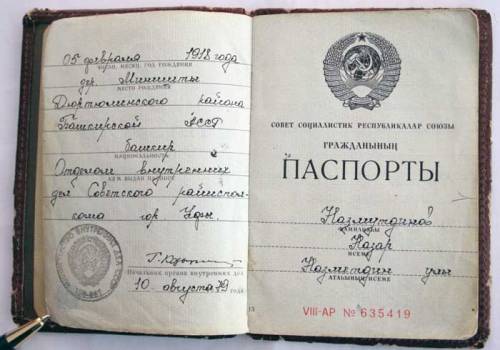 05 февраля 1918 года
ЧИСЛО, МЕСЯЦ, ГОД РОЖДЕНИЯ
дер. Миништы
МЕСТО РОЖДЕНИЯ
Дюртюлинского района
Башкирской АССР
башкир
НАЦИОНАЛЬНОСТЬ
Отделом внутренних
КЕМ ВЫДАН ПАСПОРТ
дел Советского райиспол-
кома гор. Уфы
Начальник органа внутренних дел
10 августа 79 года
СОВЕТ СОЦИАЛИСТИК РЕСПУБЛИКАЛАР СОЮЗЫ
ГРАЖДАНЫНЫҢ
ПАСПОРТЫ
Назмутдинов
ФАМИЛИЯҺЫ
Назар
ИСЕМЕ
Назметдин улы
АТАҺЫНЫҢ ИСЕМЕ
VIII-АР № 635419